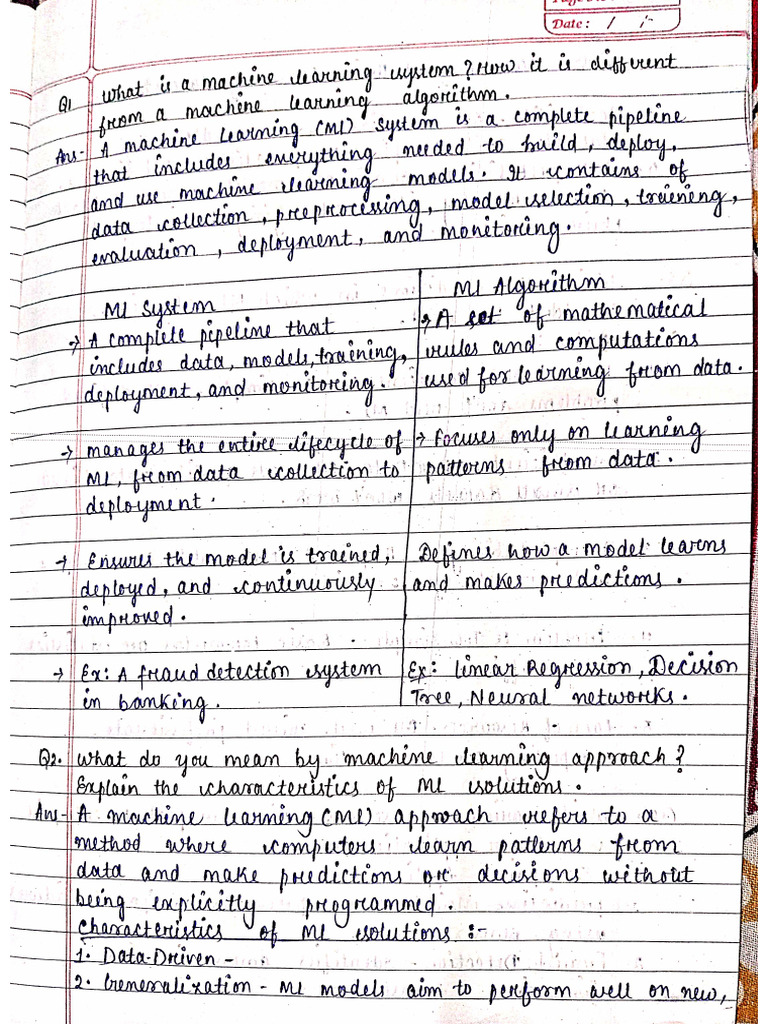 Date: / /
Q1 What is a machine learning system? How it is different
from a machine learning algorithm.
Ans- A machine learning (Ml) system is a complete pipeline
that includes everything needed to build, deploy,
and use machine learning models. It contains of
data collection, preprocessing, model selection, traeneng,
evaluation, deployment, and monitoring.
Ml System
→ A complete pipeline that
includes data, models, training,
deployment, and monitoring.
→ manages the entire lifecycle of
Ml, from data collection to
deployment.
→ Ensures the model is trained,
deployed, and continuously
improved.
→ Ex: A fraud detection system
in banking.
Ml Algorithm
→ A set of mathematical
rules and computations
used for learning from data.
→ Focuses only on learning
patterns from data.
Defines how a model learns
and makes predictions.
Ex: Linear Regression, Decision
Tree, Neural networks.
Q2. What do you mean by machine learning approach?
Explain the characteristics of Ml solutions.
Ans- A machine learning (Ml) approach refers to a
method where computers learn patterns from
data and make predictions or decisions without
being explicitly programmed.
Characteristics of Ml solutions :-
1. Data-Driven -
2. Generalization - Ml models aim to perform well on new,